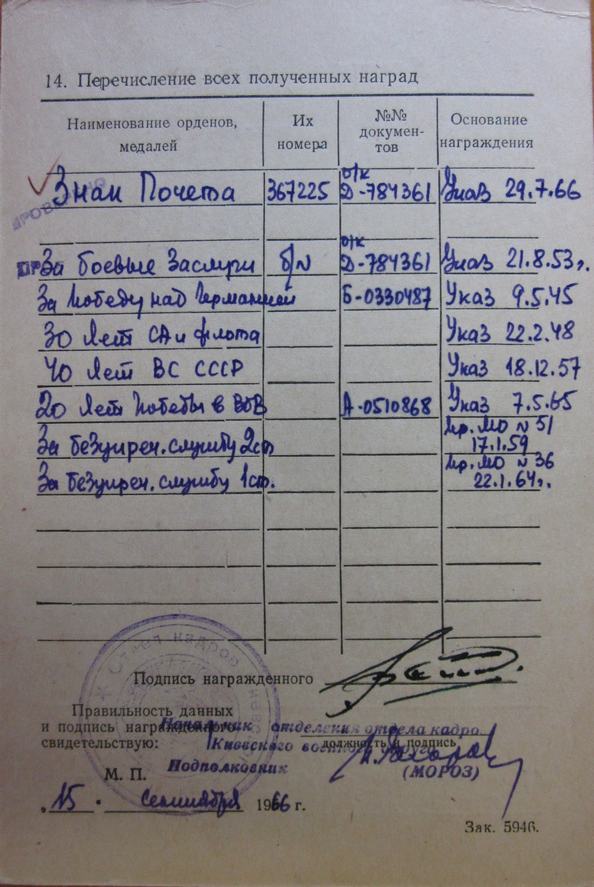 14. Перечисление всех полученных наград
Наименование орденов, медалей | Их номера | №№ документов | Основание награждения
Знак Почета 367225 б/к Д-784361 Указ 29.7.66
За боевые Заслуги б/N б/к Д-784361 Указ 21.8.53г.
За победу над Германией Б-0330487 Указ 9.5.45
30 лет СА и флота Указ 22.2.48
40 лет ВС СССР Указ 18.12.57
20 лет победы в ВОВ А-0510868 Указ 7.5.65
За безупреч. службу 2ст Пр. МО N 51 17.1.59
За безупреч. службу 1ст. Пр. МО N 36 22.1.64г.
Подпись награжденного
Правильность данных
и подпись награжденного Начальник отделения отдела кадро
свидетельствую: Киевского военного округа должность и подпись
М. П. Подполковник (МОРОЗ)
„15" Сентября 1966 г.
Зак. 5946.